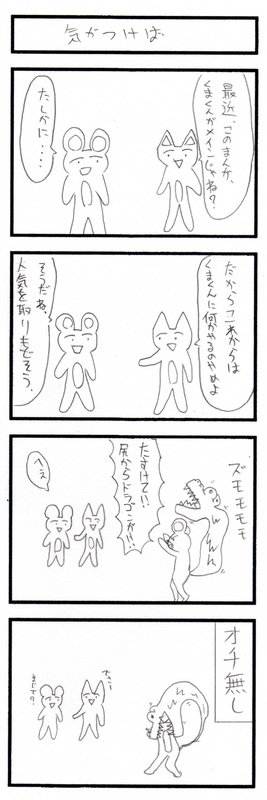 気がつけば
最近、このまんが、
くまくんがメインじゃね?
たしかに・・・・
だからこれからは
くまくんに何かやるのやめよ
そうだね、
人気を取りもどそう。
ズモモモモ
たすけて!!
尻からドラゴンが!!
へえ
オチ無し
まじで?